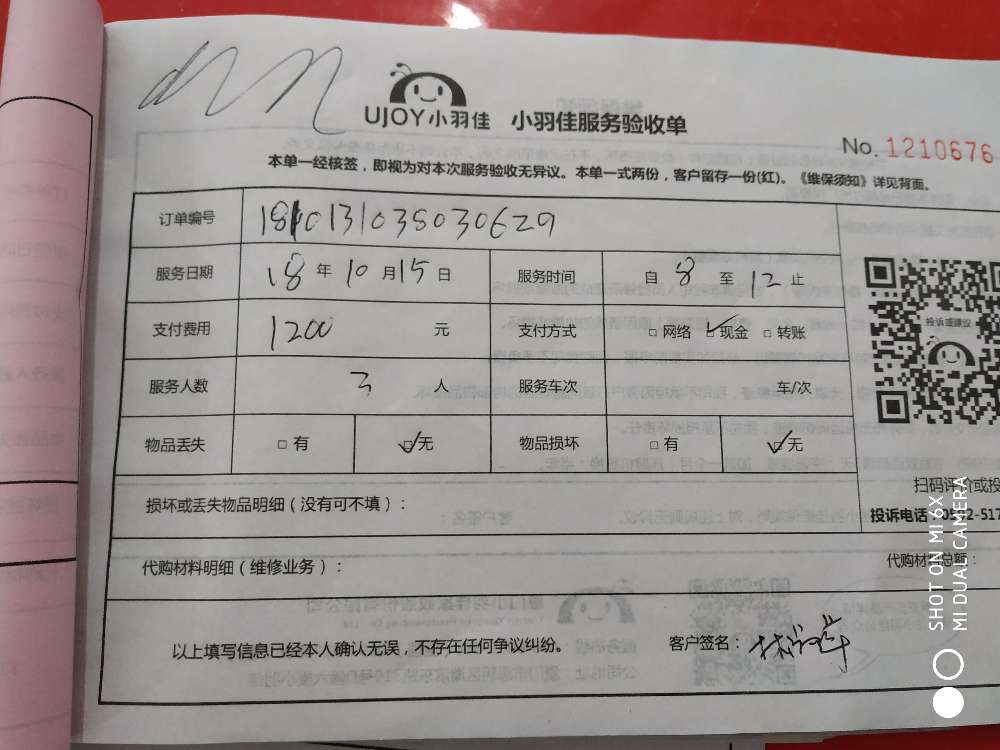 UJOY小羽佳 小羽佳服务验收单
No. 1210676
本单一经核签，即视为对本次服务验收无异议。本单一式两份，客户留存一份(红)。《维保须知》详见背面。
订单编号 1810131035030629
服务日期 18 年 10 月 15 日 服务时间 自 8 至 12 止
支付费用 1200 元 支付方式 □ 网络 ☑ 现金 □ 转账
服务人数 3 人 服务车次 车/次
物品丢失 □ 有 ☑ 无 物品损坏 □ 有 ☑ 无
投诉或建议
损坏或丢失物品明细（没有可不填）：
扫码评价或投
投诉电话：0592-517
代购材料明细（维修业务）： 代购材料总额：
以上填写信息已经本人确认无误，不存在任何争议纠纷。 客户签名：
SHOT ON MI 6X
MI DUAL CAMERA